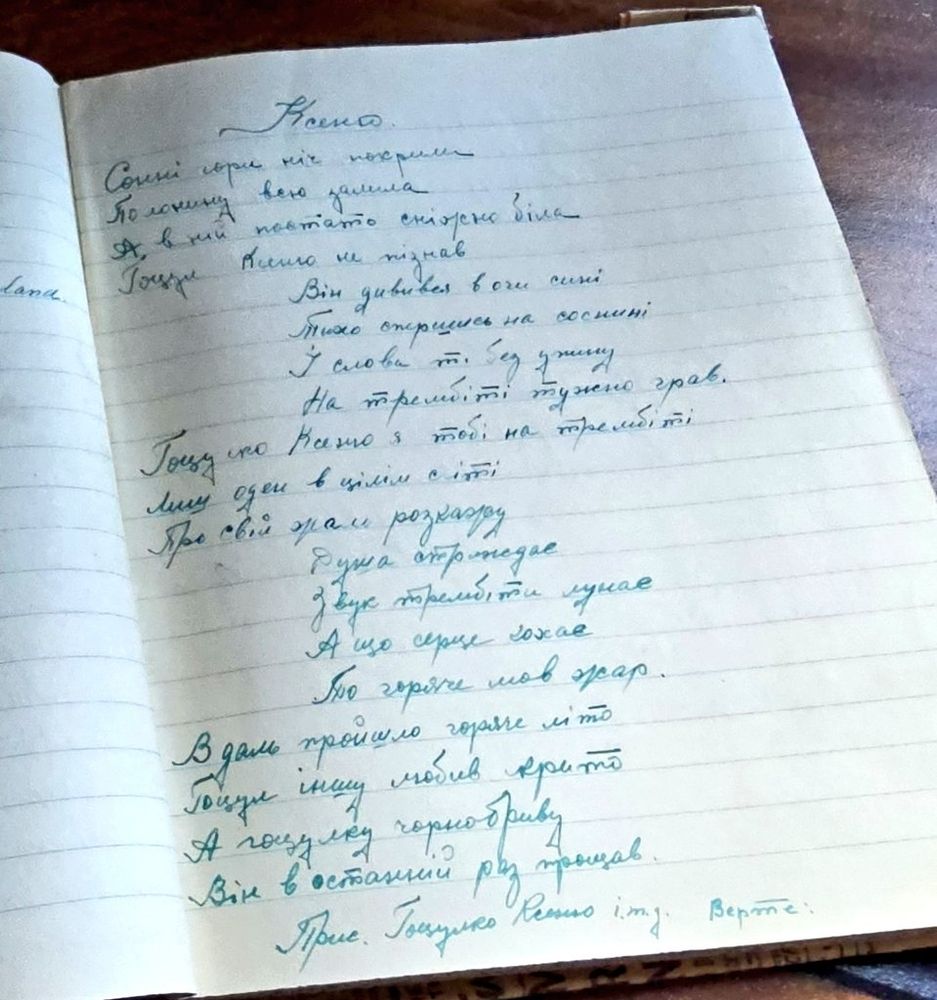 Ксеню.
Сонні гори ніч покрили
Полонину всю залила
А в ній постать сніжно біла
Гоцул Ксеню не пізнав
Він дивився в очи сині
Тихо спершись на соснині
І слова ті без упину
На трембіті тужно грав.
Гоцулко Ксеню я тобі на трембіті
Лиш оден в цілім світі
Про свій жаль розкажу
Душа страждає
Звук трембіти лунає
А що серце кохає
То горяче мов жар.
В даль пройшло горяче літо
Гоцул іншу любив крито
А гоцулку чорнобриву
Він в останній раз прощав.
Прис. Гоцулко Ксеню і.т.д. Верте:
land.